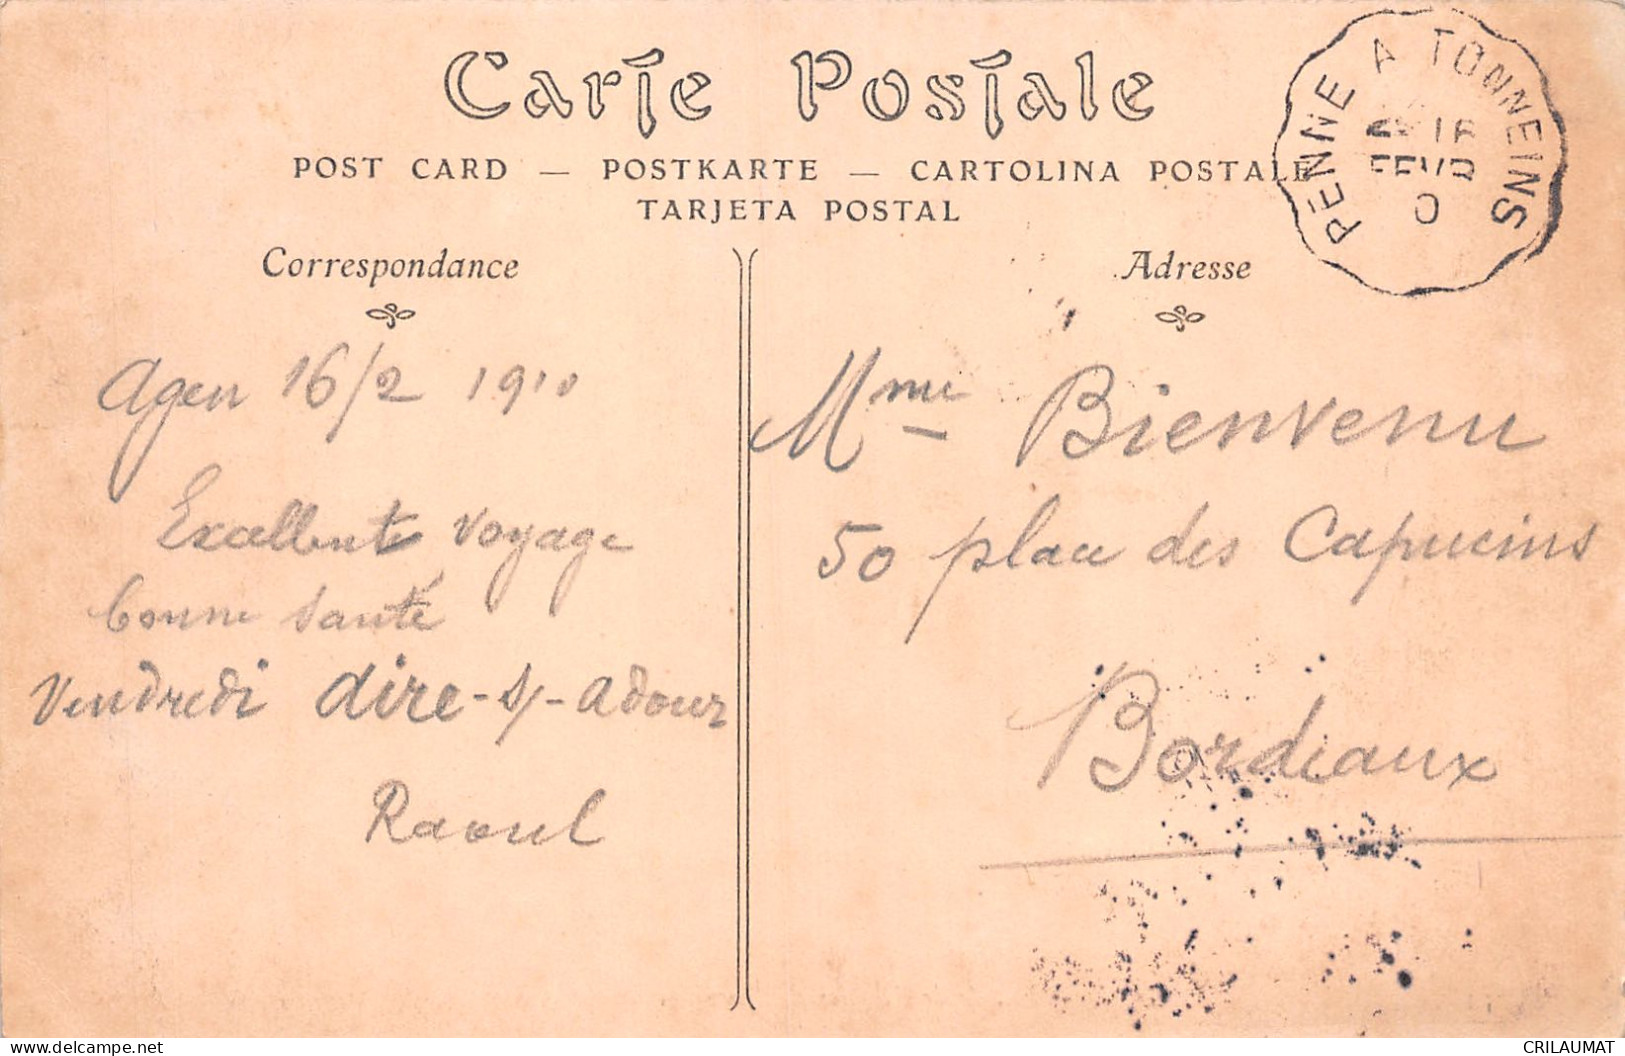 Carte Postale
POST CARD — POSTKARTE — CARTOLINA POSTALE
TARJETA POSTAL
PENNE A TONNEINS
16
FEVR
0
Correspondance
Agen 16/2 1910
Excellente voyage
bonne santé
Vendredi dire-s/-Adour
Raoul
Adresse
Mme Bienvenu
50 place des Capucins
Bordeaux
delcampe.net
CRILAUMAT